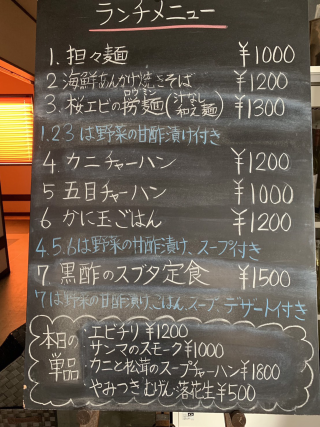 ランチメニュー
1. 担々麺 ¥1000
2. 海鮮あんかけ焼きそば ¥1200
3. 桜エビの撈麺(汁なし和え麺) ¥1300
ロウミン
1.2.3は野菜の甘酢漬け付き
4. カニチャーハン ¥1200
5 五目チャーハン ¥1000
6 かに玉ごはん ¥1200
4.5.6は野菜の甘酢漬け、スープ付き
7. 黒酢のスブタ定食 ¥1500
7は野菜の甘酢漬け、ごはん、スープ、デザート付き
本日の単品
・エビチリ ¥1200
・サンマのスモーク ¥1000
・カニと松茸のスープチャーハン ¥1800
・やみつきむげん落花生 ¥500